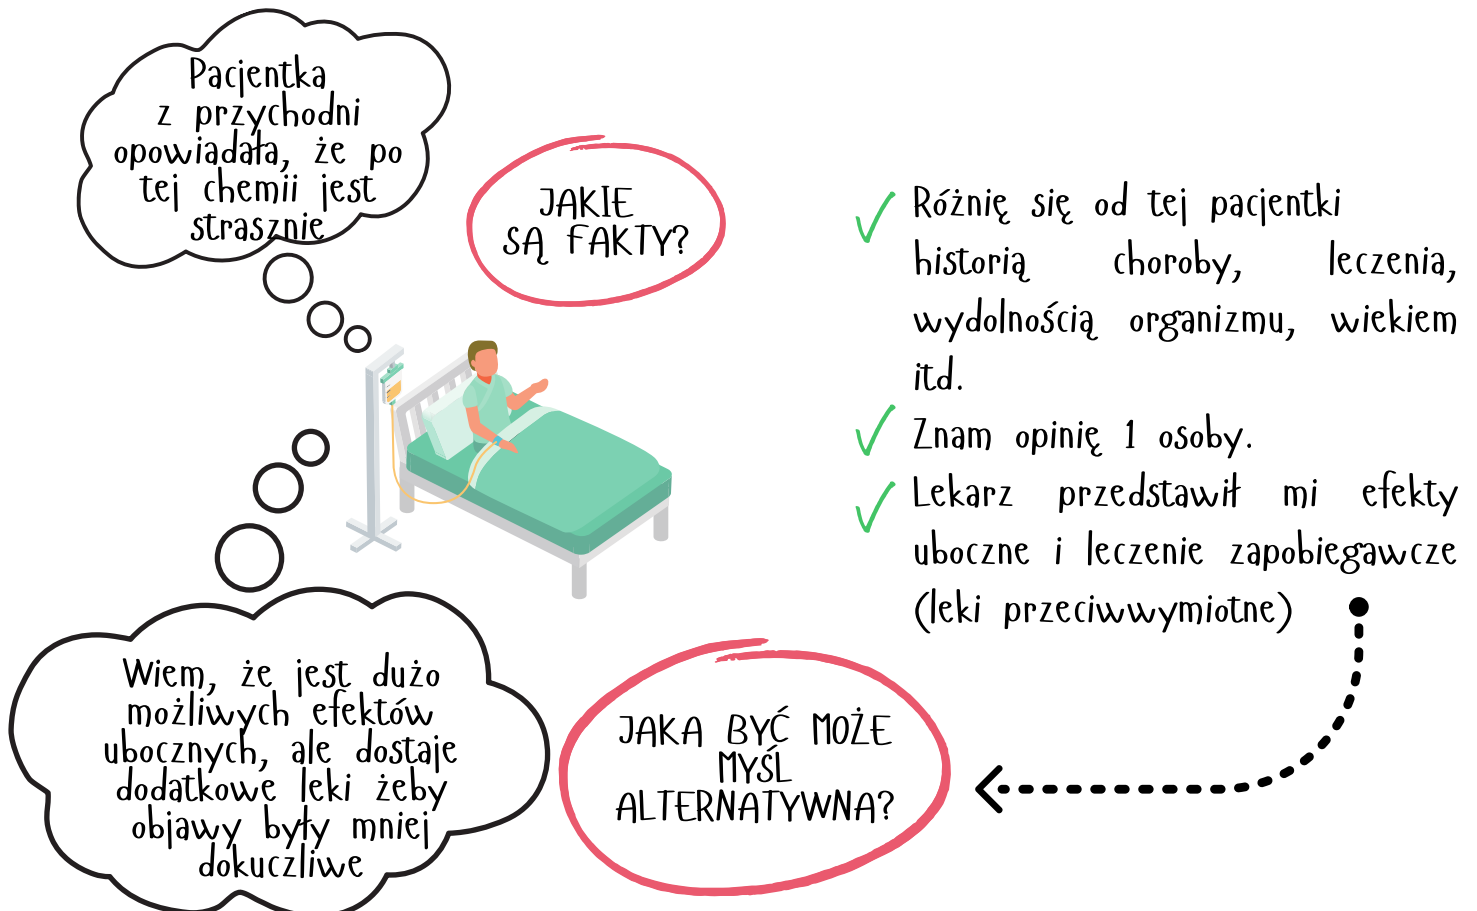 Pacjentka
z przychodni
opowiadała, że po
tej chemii jest
strasznie
JAKIE
SĄ FAKTY?
Różnię się od tej pacjentki
historią choroby, leczenia,
wydolnością organizmu, wiekiem
itd.
Znam opinię 1 osoby.
Lekarz przedstawił mi efekty
uboczne i leczenie zapobiegawcze
(leki przeciwwymiotne)
JAKA BYĆ MOŻE
MYŚL
ALTERNATYWNA?
Wiem, że jest dużo
możliwych efektów
ubocznych, ale dostaje
dodatkowe leki żeby
objawy były mniej
dokuczliwe